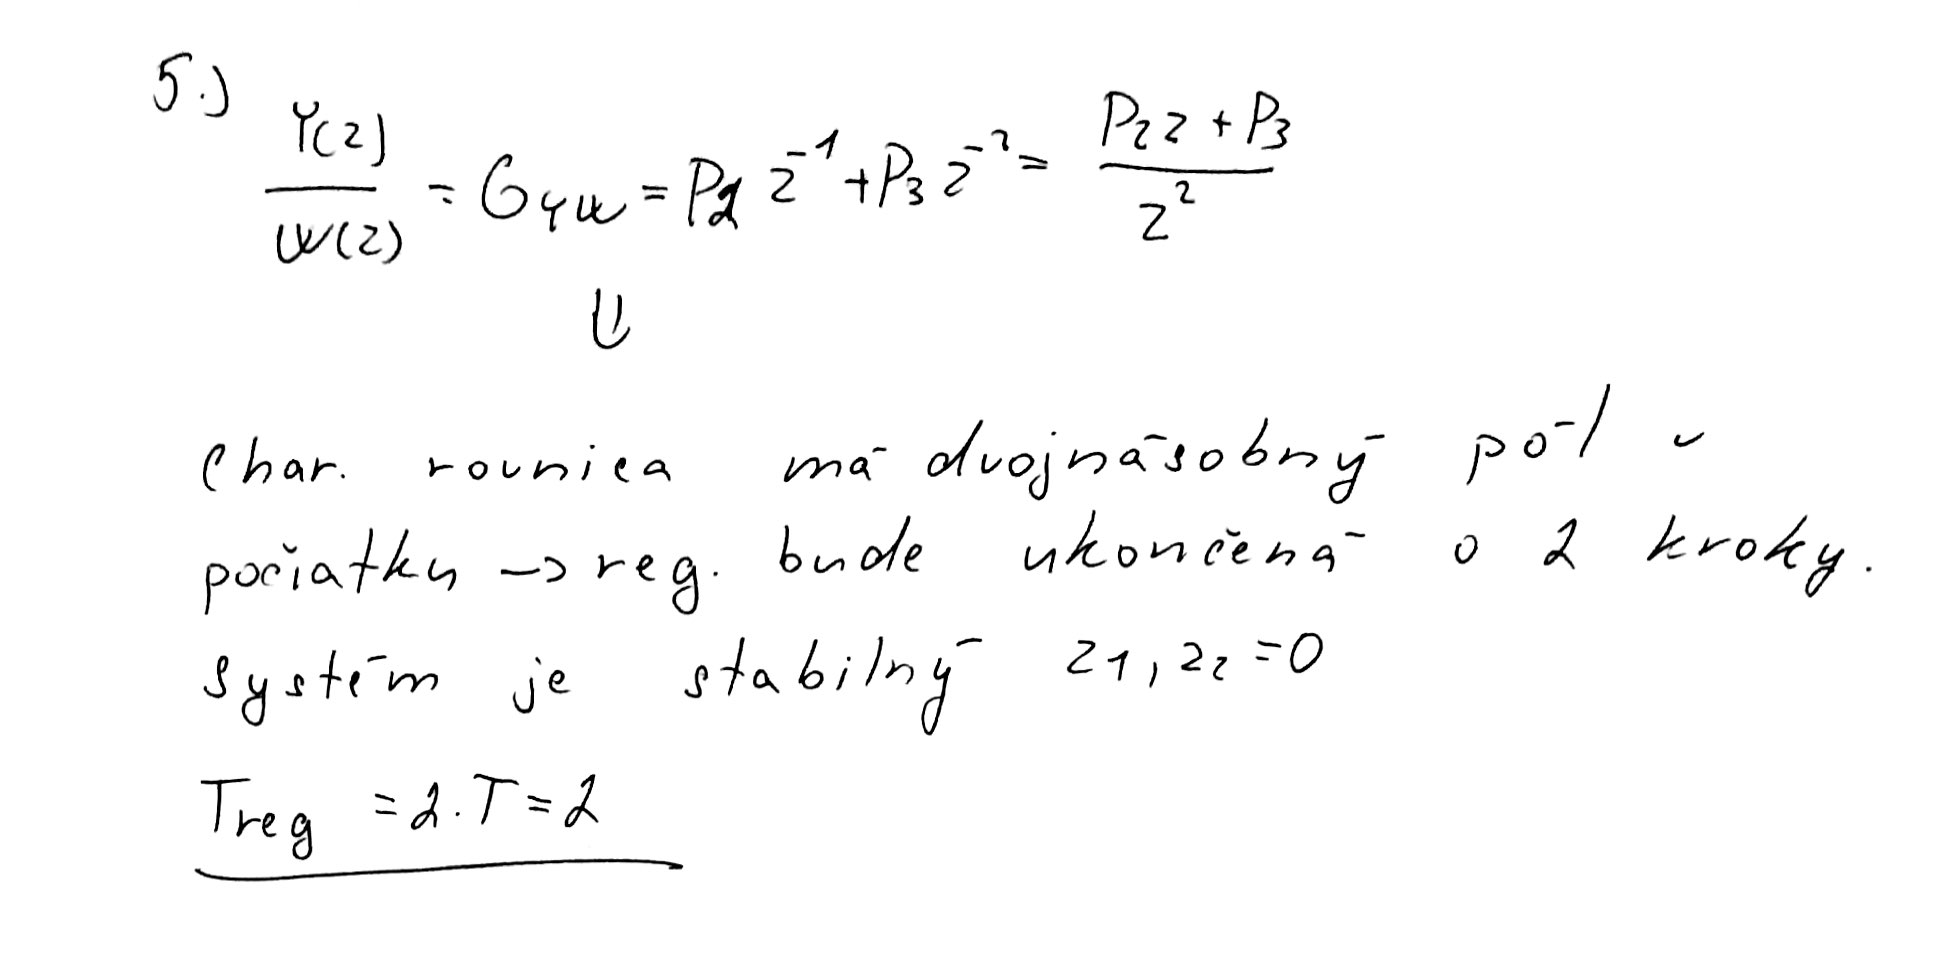 5.)
Y(z)/W(z) = G_YW = P_2 z^-1 + P_3 z^-2 = (P_2 z + P_3)/z^2
⇓
char. rovnica má dvojnásobný pól v
počiatku -> reg. bude ukončená o 2 kroky.
systém je stabilný z_1, z_2 = 0
T_reg = 2.T = 2